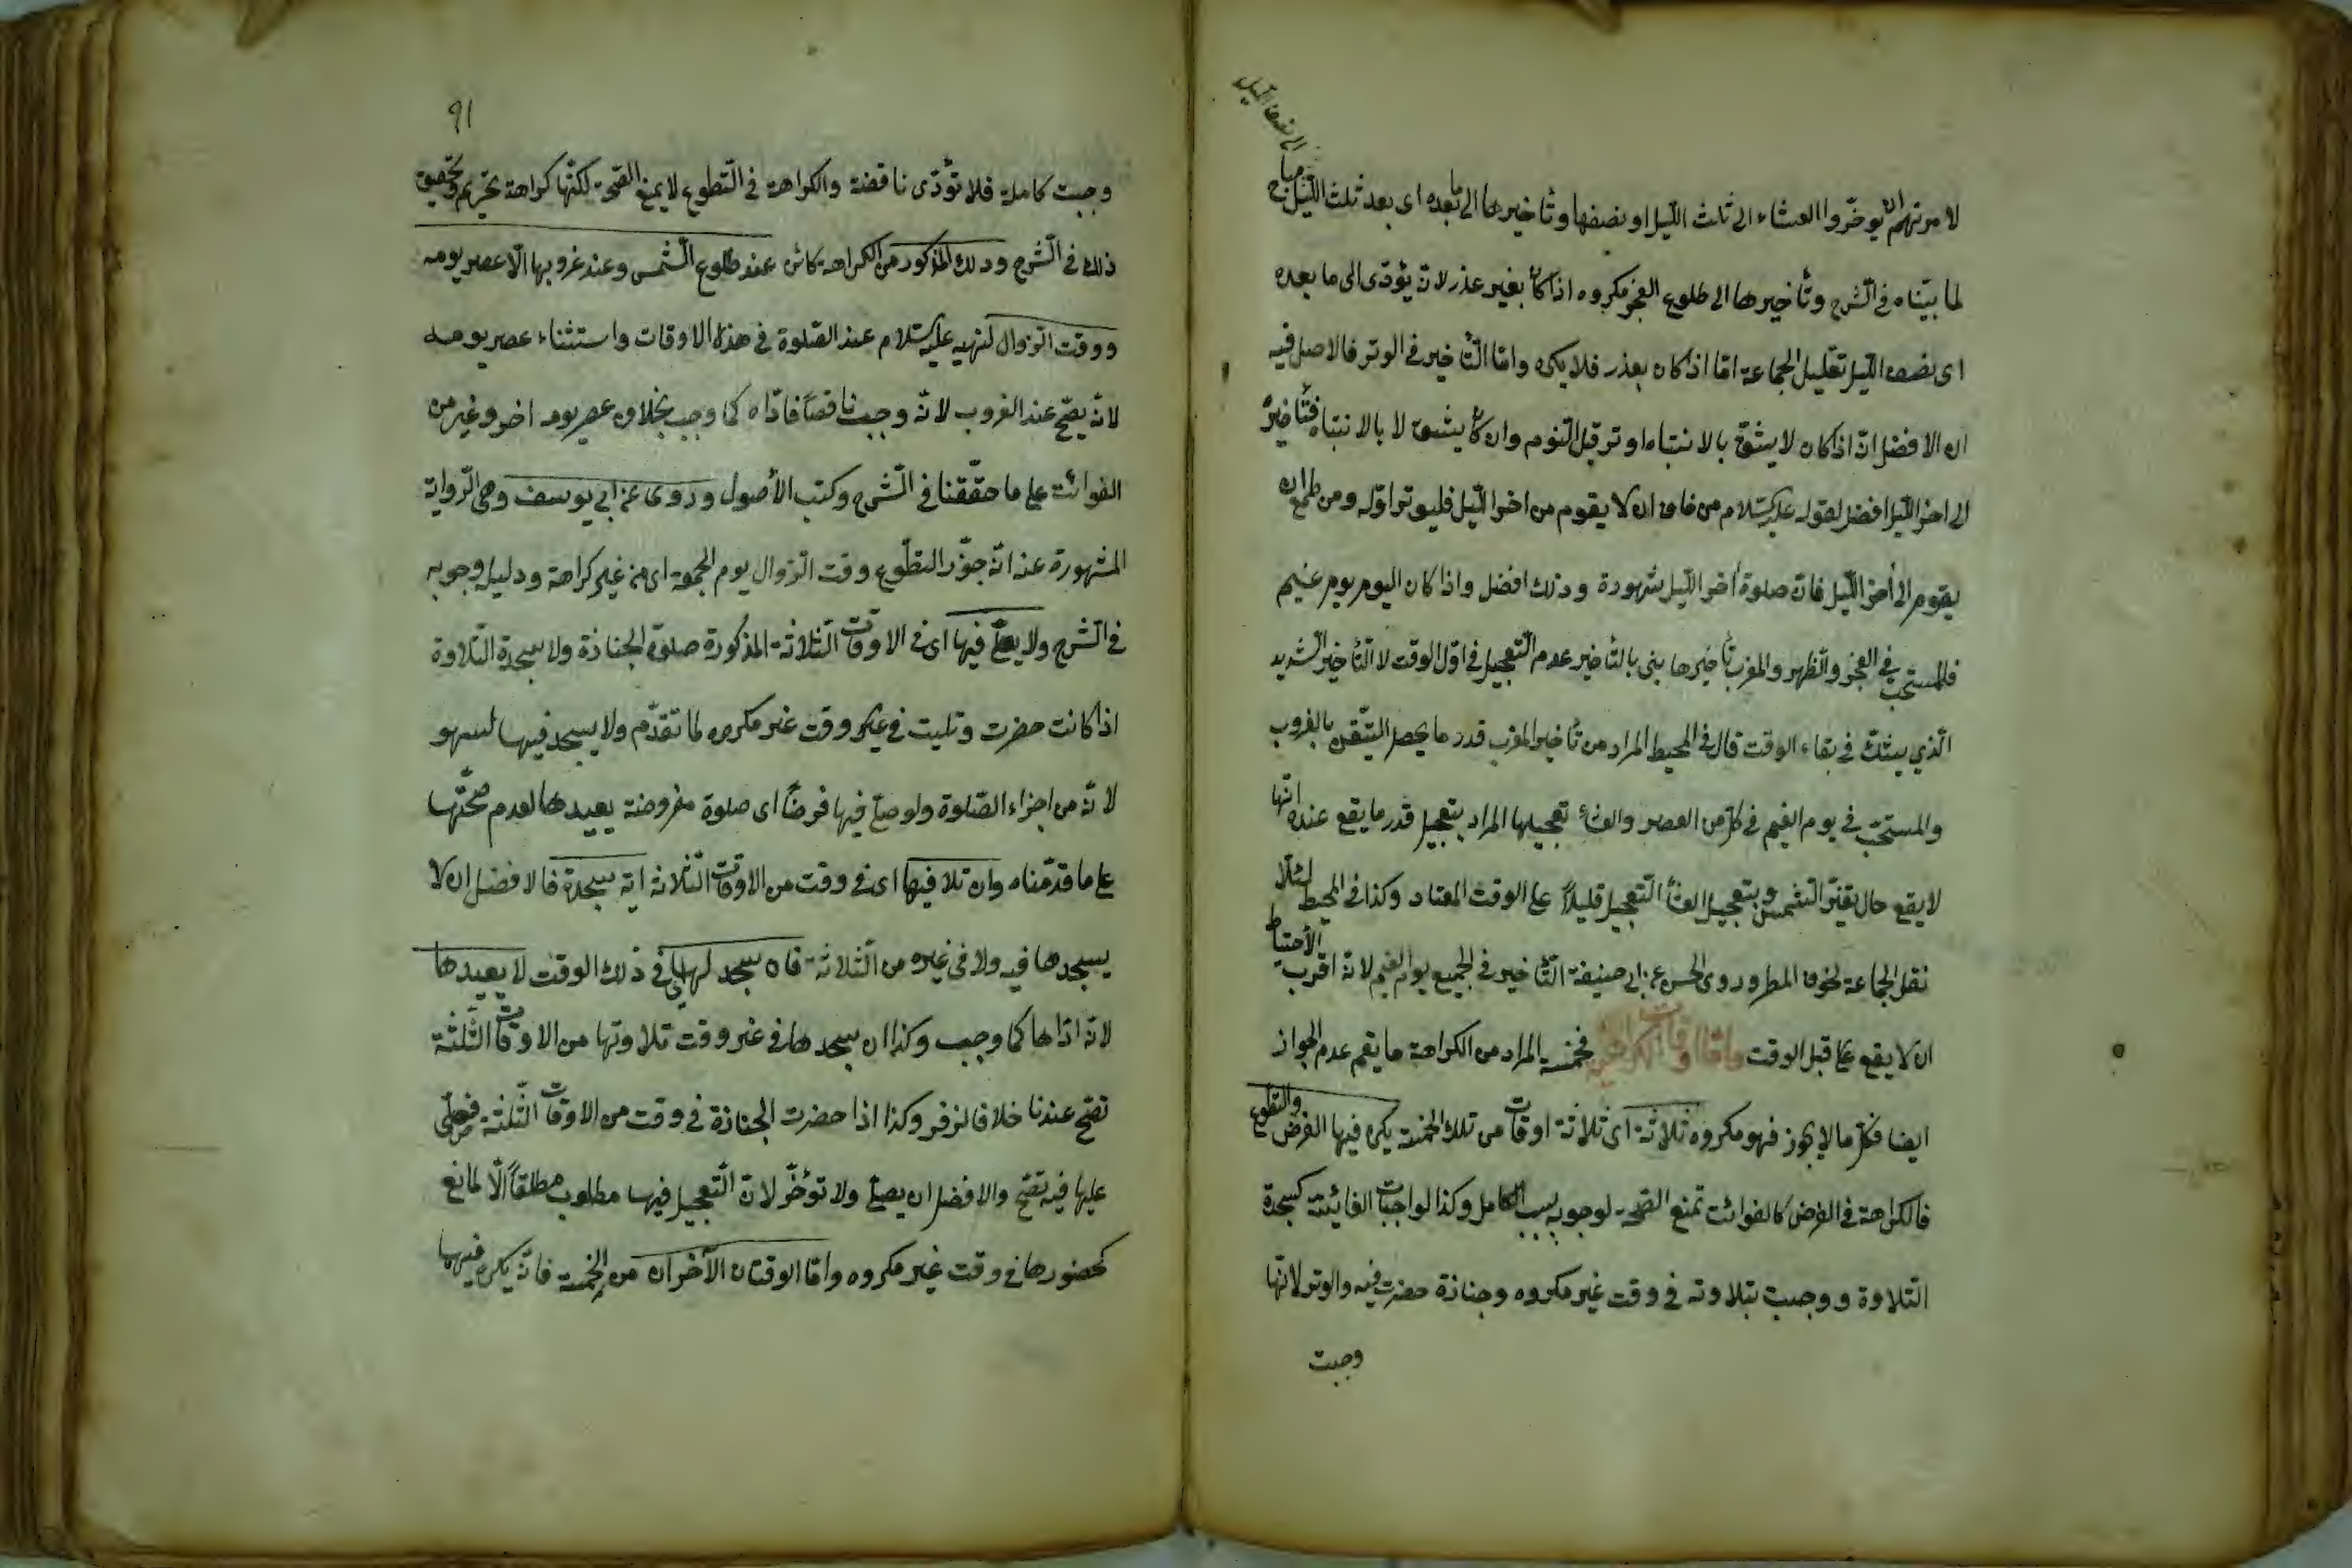 الى نصف الليل
لامرتهم ان يؤخّروا العشاء الى ثلث الليل او نصفها وتأخيرها الى ما بعده اى بعد ثلث الليل مباح
لما بيّناه فى الشرح وتأخيرها الى طلوع الفجر مكروه اذا كان بغير عذر لانه يؤدّى الى ما بعده
اى نصف الليل تقليل الجماعة امّا اذا كان بعذر فلا يكره وامّا التأخير فى الوتر فالاصل فيه
ان الافضل انه اذا كان لا يثق بالانتباه اوتر قبل النوم وان كان يثق لا بالانتباه فتأخيره
الى اخر الليل افضل لقوله عليه السلام من خاف ان لا يقوم من اخر الليل فليوتر اوّله ومن طمع ان
يقوم الى أخر الليل فانّ صلوة أخر الليل مشهودة وذلك افضل واذا كان اليوم يوم غيم
فالمستحبّ فى الفجر والظهر والمغرب تأخيرها يعنى بالتأخير عدم التعجيل فى اوّل الوقت لا التأخير الشديد
الّذي يشكّ فى بقاء الوقت قال فى المحيط المراد من تأخير المغرب قدر ما يحصل التيقّن بالغروب
والمستحبّ فى يوم الغيم فى كلّ من العصر والعشاء تعجيلها المراد بتعجيل قدر ما يقع عنده انها
لا يقع حال تغيّر الشمس وبتعجيل العشاء التعجيل قليلاً على الوقت المعتاد وكذا فى المحيط لئلا
تقل الجماعة لخوف المطر وروى الحسن عن ابى حنيفة التأخير فى الجميع يوم الغيم لانه اقرب الى الاحتياط
ان لا يقع على قبل الوقت وامّا اوقات الكراهة فخمسة المراد من الكراهة ما يعم عدم الجواز
ايضا فكلّ ما لا يجوز فهو مكروه ثلاثة اى ثلاثة اوقات من تلك الخمسة يكره فيها الفرض والتطوع
فالكراهة فى الفرض كالفوائت تمنع الصحة لوجوبه بسبب الكامل وكذا لواجبات الفائتة كسجدة
التلاوة ووجبت بتلاوته فى وقت غير مكروه وجنازة حضرت فيه والوتر لانّها
وجبت
٩١
وجبت كاملة فلا تؤدّى ناقصة والكراهة فى التطوع لا يمنع الصحة لكنّها كراهة تحريم وتحقيق
ذلك فى الشرح وذلك المذكور من الكراهة كائن عند طلوع الشمس وعند غروبها الّا عصر يومه
ووقت الزوال لنهيه عليه السلام عند الصلوة فى هذه الاوقات واستثناء عصر يومه
لانه يصحّ عند الغروب لانه وجبت ناقصاً فادّاه كما وجب بخلاف عصر يوم اخر وغيره من
الفوائت على ما حقّقنا فى الشرح وكتب الأصول وروى عن ابي يوسف وهى الرواية
المشهورة عنه انه جوّز التطوّع وقت الزوال يوم الجمعة اى من غير كراهة ودليل وجوبه
فى الشرح ولا يصلّى فيها اى فى الاوقات الثلاثة المذكورة صلوة الجنازة ولا سجدة التلاوة
اذا كانت حضرت وتليت فى وقت غير مكروه لما تقدّم ولا يسجد فيها لسهو
لانه من اجزاء الصّلوة ولو صلّى فيها فرضاً اى صلوة مفروضة يعيدها لعدم صحّتها
على ما قدّمناه وان تلا فيها اى فى وقت من الاوقات الثلاثة اية سجدة فالافضل ان لا
يسجدها فيه ولا فى غيره من الثلاثة فان سجد لها اى فى ذلك الوقت لا يعيدها
لانه ادّاها كما وجب وكذا ان سجدها فى غير وقت تلاوتها من الاوقات الثّلثة
تصحّ عندنا خلافا لزفر وكذا اذا حضرت الجنازة فى وقت من الاوقات الثلثة فصلّى
عليها فيه تصحّ والافضل ان يصلّى ولا تؤخّر لانّ التعجيل فيها مطلوب مطلقاً الّا لمانع
كحضورها فى وقت غير مكروه وامّا الوقتان الآخران من الخمسة فانه يكره فيهما